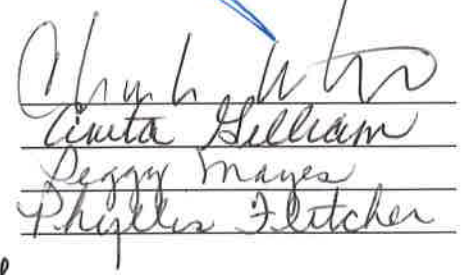 Chuck
Anita Gilliam
Peggy Mayes
Phyllis Fletcher